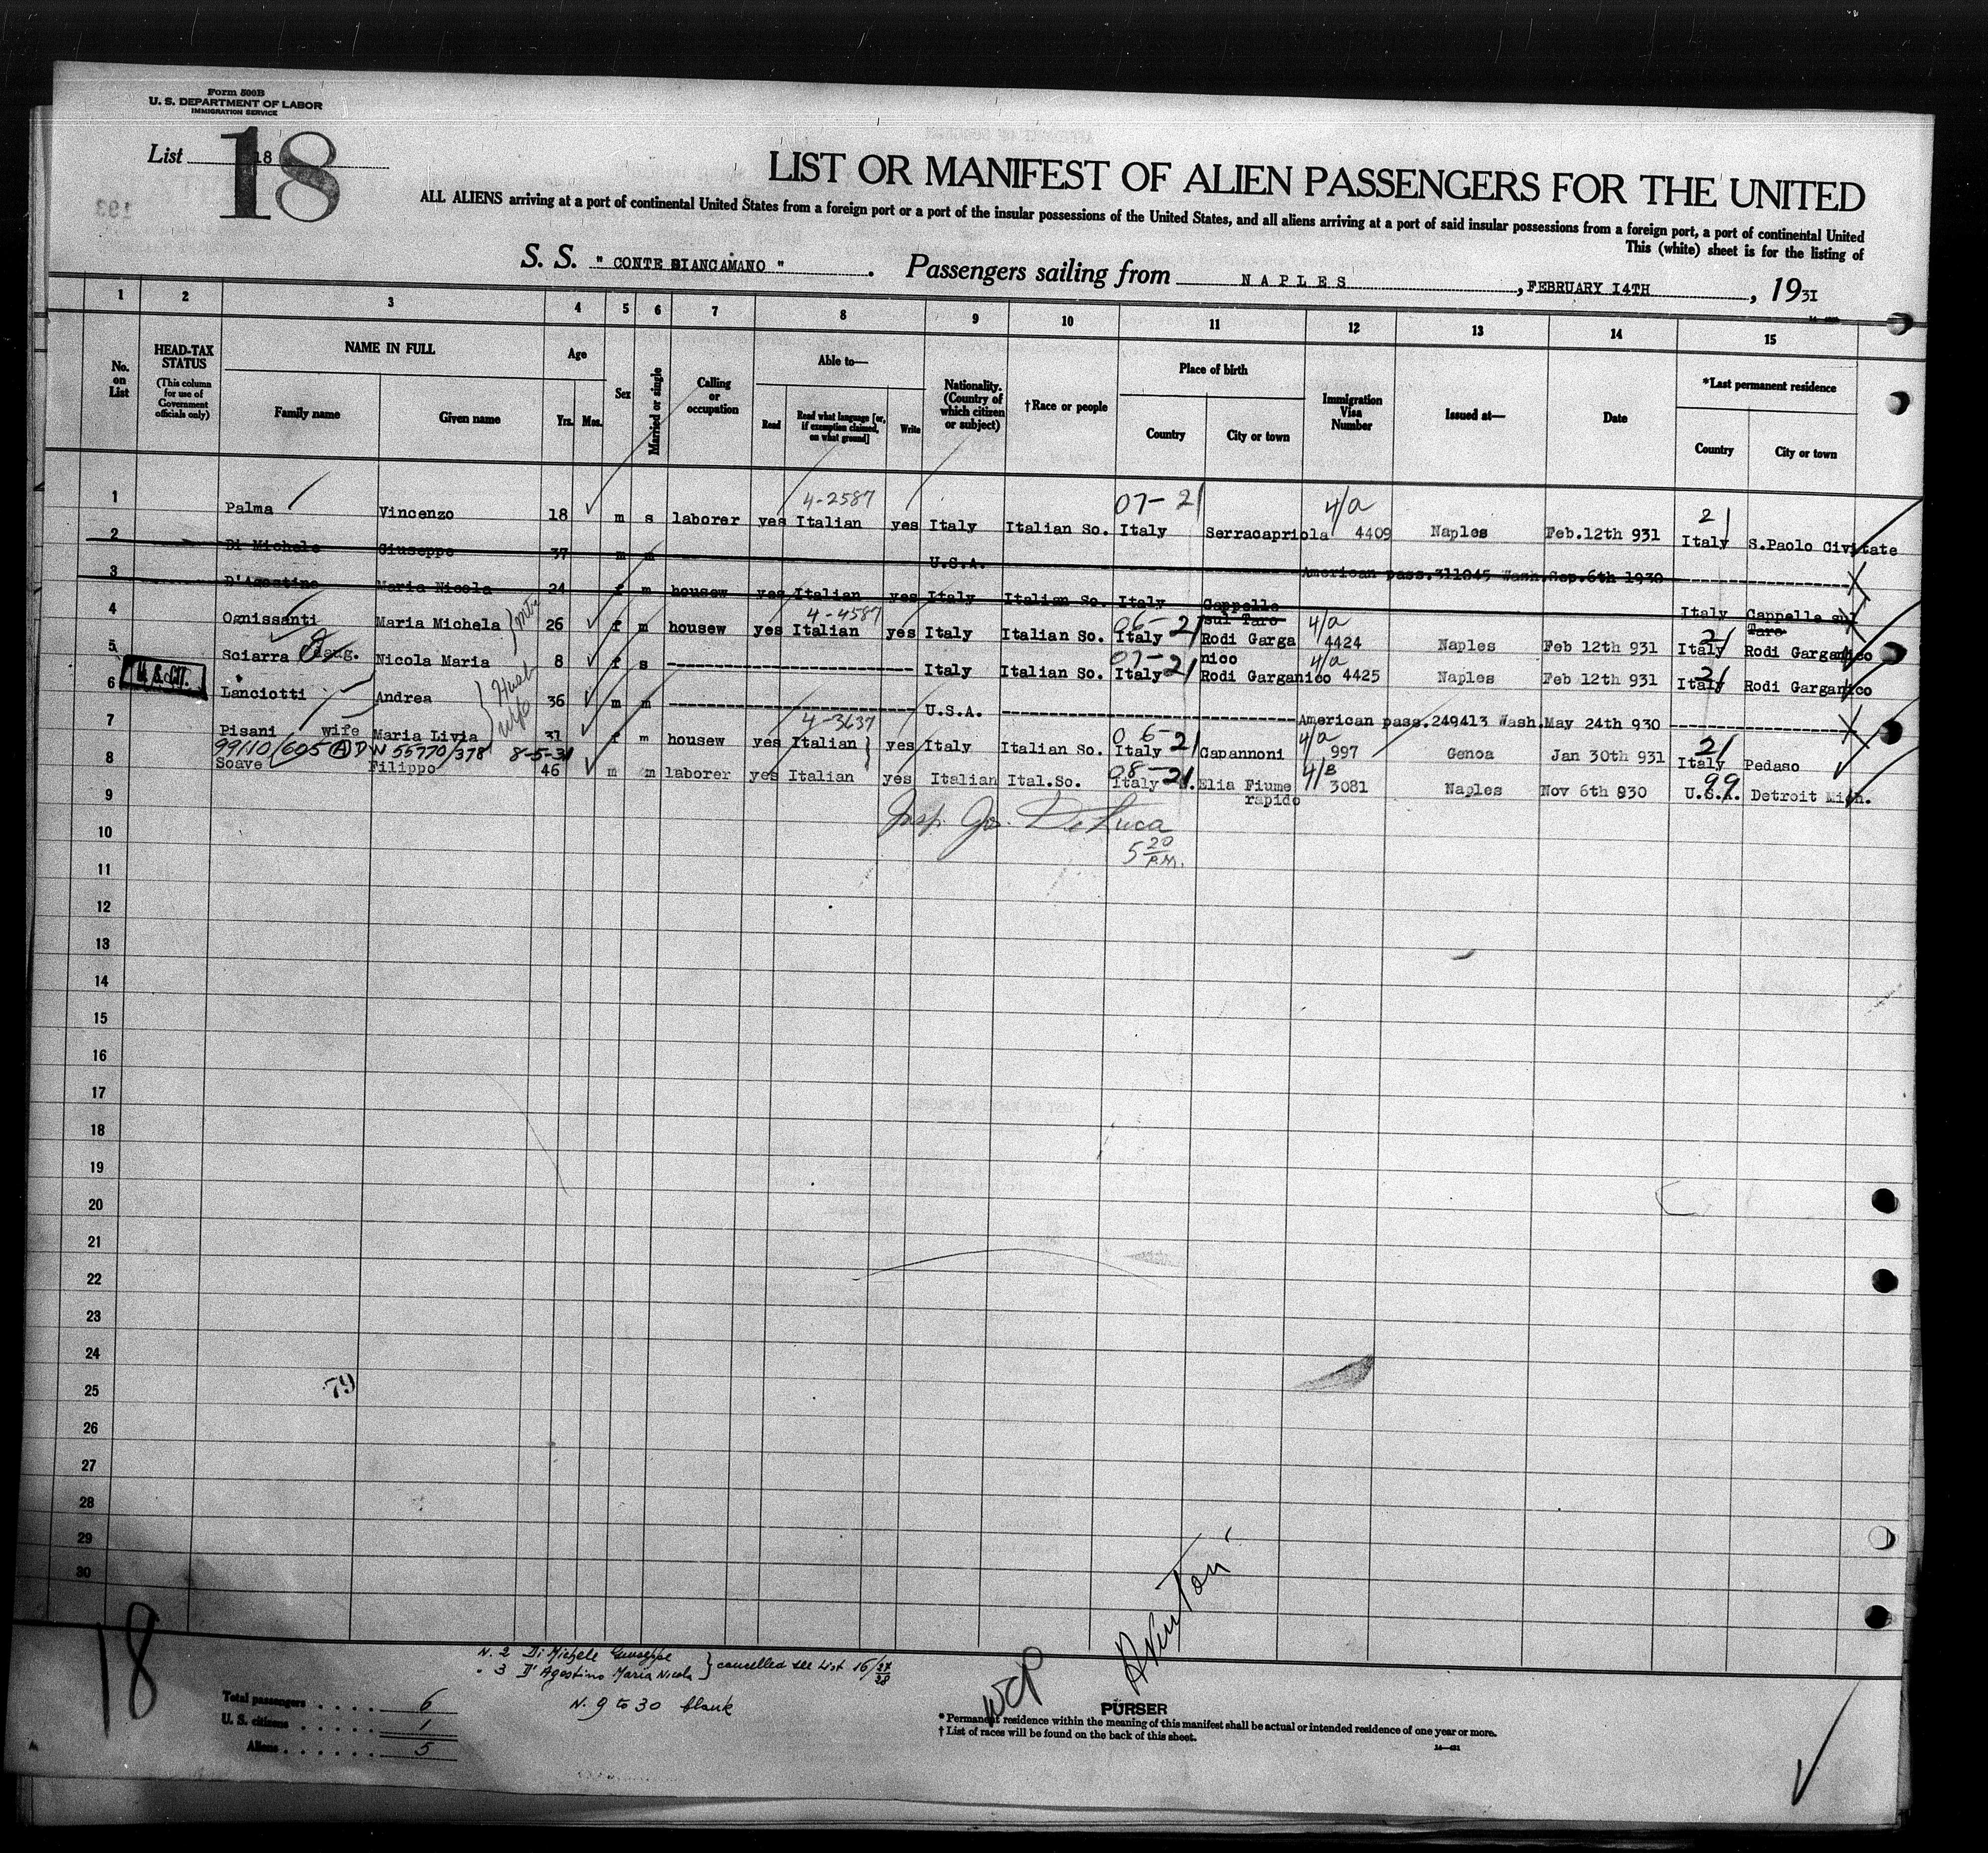 Form 500B
U. S. DEPARTMENT OF LABOR
IMMIGRATION SERVICE
List 18
18
LIST OR MANIFEST OF ALIEN PASSENGERS FOR THE UNITED
ALL ALIENS arriving at a port of continental United States from a foreign port or a port of the insular possessions of the United States, and all aliens arriving at a port of said insular possessions from a foreign port, a port of continental United
This (white) sheet is for the listing of
S. S. " CONTE BIANCAMANO " . Passengers sailing from NAPLES , FEBRUARY 14TH , 1931
1 2 3 4 5 6 7 8 9 10 11 12 13 14 15
No. on List
HEAD-TAX STATUS
(This column for use of Government officials only)
NAME IN FULL
Family name Given name
Age
Yrs. Mos.
Sex
Married or single
Calling or occupation
Able to—
Read
Read what language [or, if exemption claimed, on what ground]
Write
Nationality. (Country of which citizen or subject)
†Race or people
Place of birth
Country City or town
Immigration Visa Number
Issued at—
Date
*Last permanent residence
Country City or town
4-2587 07- 21 4/a 21
1 Palma Vincenzo 18 m s laborer yes Italian yes Italy Italian So. Italy Serracapriola 4409 Naples Feb.12th 931 Italy S.Paolo Civitate
2 Di Michele Giuseppe 37 m m U.S.A. American pass.311045 Wash.Sep.6th 1930
3 D'Agostino Maria Nicola 24 f m housew yes Italian yes Italy Italian So. Italy Cappelle sul Taro Italy Cappelle sul Taro
4-4587 06- 21 4/a 21
4 Ognissanti Maria Michela 26 f m housew yes Italian yes Italy Italian So. Italy Rodi Garganico 4424 Naples Feb 12th 931 Italy Rodi Garganico
07- 21 4/a 21
5 Sciarra Daug. Nicola Maria 8 f s Italy Italian So. Italy Rodi Garganico 4425 Naples Feb 12th 931 Italy Rodi Garganico
U. S. CIT.
6 Lanciotti Andrea 36 m m U.S.A. American pass.249413 Wash.May 24th 930
Husb wife
4-3637 06- 21 4/a 21
7 Pisani wife Maria Livia 31 f m housew yes Italian yes Italy Italian So. Italy Capannoni 997 Genoa Jan 30th 931 Italy Pedaso
99/10/605 A D N 55770/378 8-5-31
08- 21 4/B 99
8 Soave Filippo 46 m m laborer yes Italian yes Italian Ital.So. Italy S.Elia Fiume rapido 3081 Naples Nov 6th 930 U.S.A. Detroit Mich.
9
Insp. Jos. DeLuca
10
5 20 P.M.
11
12
13
14
15
16
17
18
19
20
21
22
23
24
25
79
26
27
28
29
30
18
N. 2 Di Michele Giuseppe
" 3 D'Agostino Maria Nicola } cancelled see List 16/27 28
N. 9 to 30 blank
Total passengers . . . . 6
U. S. citizens . . . . . 1
Aliens . . . . . . 5
PURSER
* Permanent residence within the meaning of this manifest shall be actual or intended residence of one year or more.
† List of races will be found on the back of this sheet.